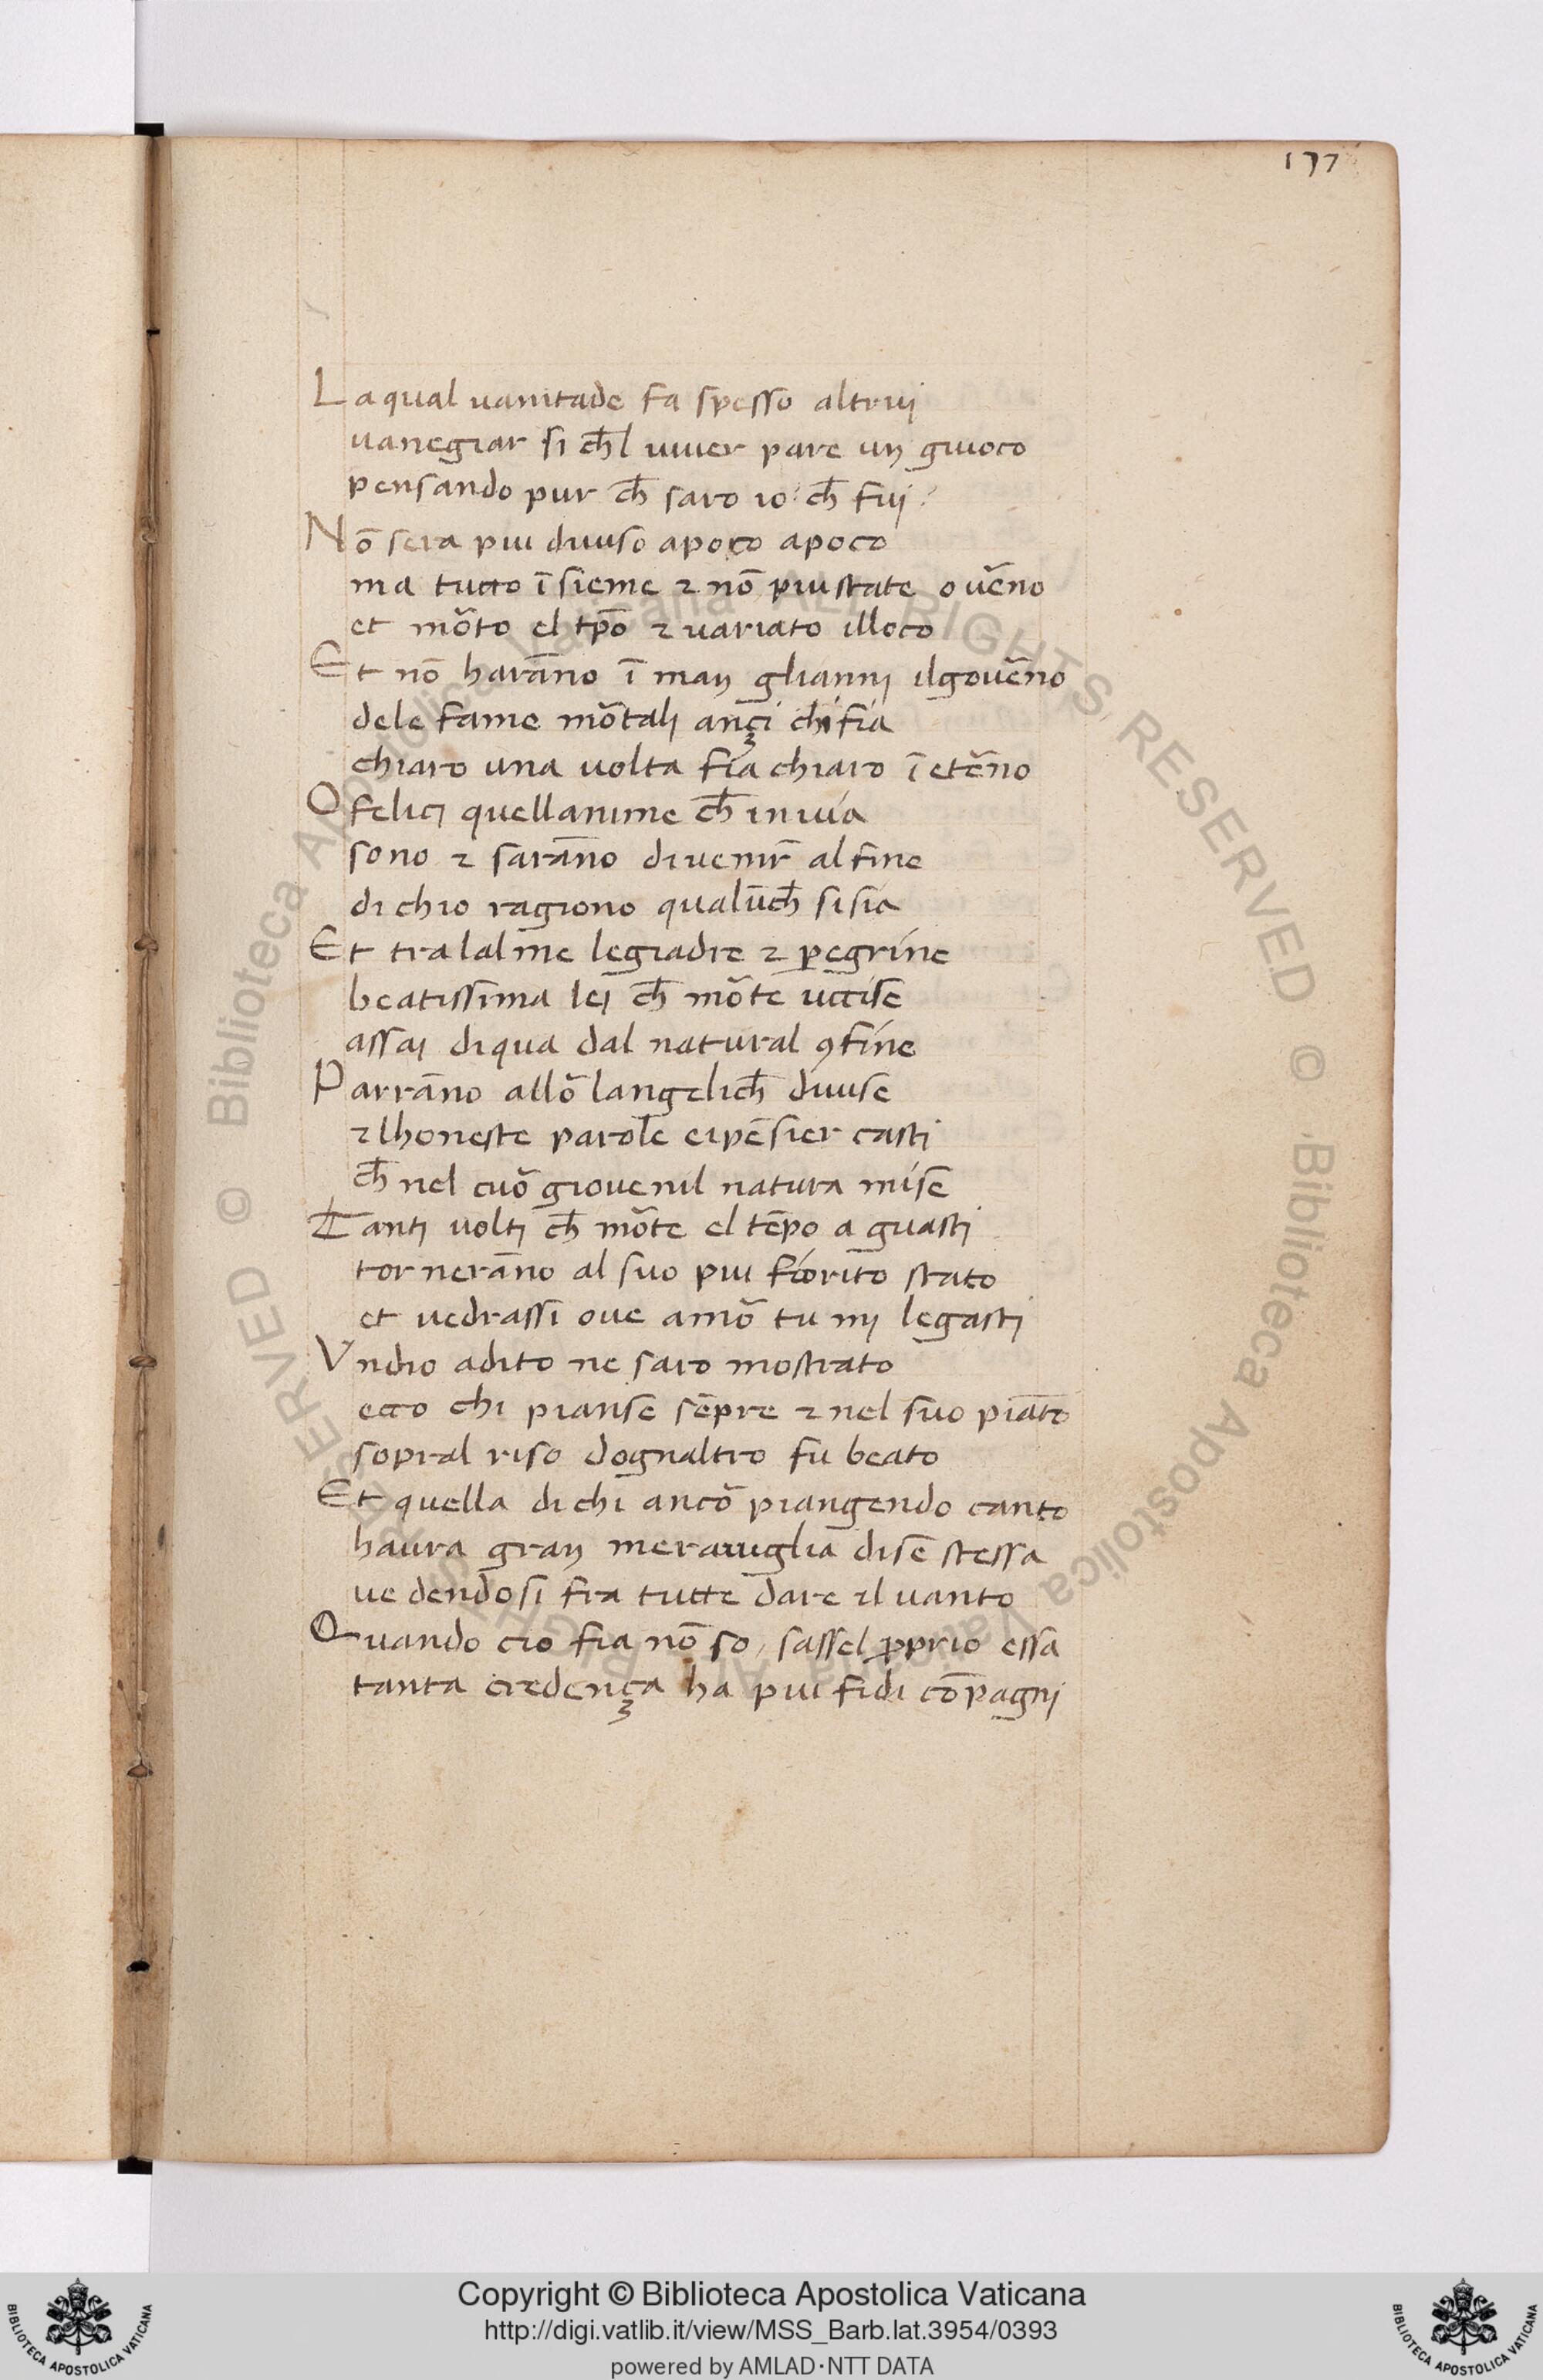 177
La qual uanitade fa spesso altruj
uanegiar si ch̄l uiuer pare un giuoco
pensando pur ch̄ saro io? ch̄ fuj?
Nō sera piu diuiso apoco apoco
ma tutto īsieme ⁊ nō piu state o uẽno
et mõto el tp̄o ⁊ uariato illoco
Et nō harāno ī man gliannj ilgouẽno
dele fame mõtalj ançi chi fia
chiaro una uolta fia chiaro ī etẽno
O felici quellanime ch̄ in uia
sono ⁊ sarāno di uenir̄ al fine
di chio ragiono qualūch̄ si sia
Et tra lalme legiadre ⁊ ꝑegrine
beatissima lej ch̄ mõte uccise
assaj diqua dal natural ꝯfine
Parrāno allõ langelich̄ diuise
⁊ lhoneste parole ei pēsier castj
ch̄ nel cuõ giouenil natura mise
Tanti volti ch̄ mõte el tēpo a guastj
tornerāno al suo piu fiorito stato
et uedrassi oue amõ tu mj legastj
Vndio adito ne saro mostrato
ecco chi pianse sēpre ⁊ nel suo piāto
sopral riso dognaltro fu beato
Et quella di chi ancõ piangendo canto
haura gran merauiglia di se stessa
uedendosi fra tutte dare il uanto
Quando cio fia nō so, sassel ꝓprio essa
tanta credença ha piu fidi cōpagnj
© Biblioteca Apostolica Vaticana ALL RIGHTS RESERVED
© Biblioteca Apostolica Vaticana ALL RIGHTS RESERVED
Copyright © Biblioteca Apostolica Vaticana
http://digi.vatlib.it/view/MSS_Barb.lat.3954/0393
powered by AMLAD·NTT DATA
BIBLIOTECA APOSTOLICA VATICANA
BIBLIOTECA APOSTOLICA VATICANA